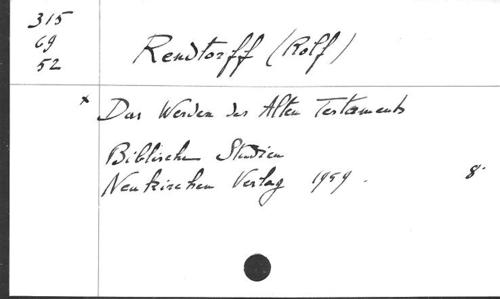 315
69
52
Rendtorff (Rolf)
x Das Werden des Alten Testaments
Biblische Studien
Neukirchen Verlag 1959. 8°